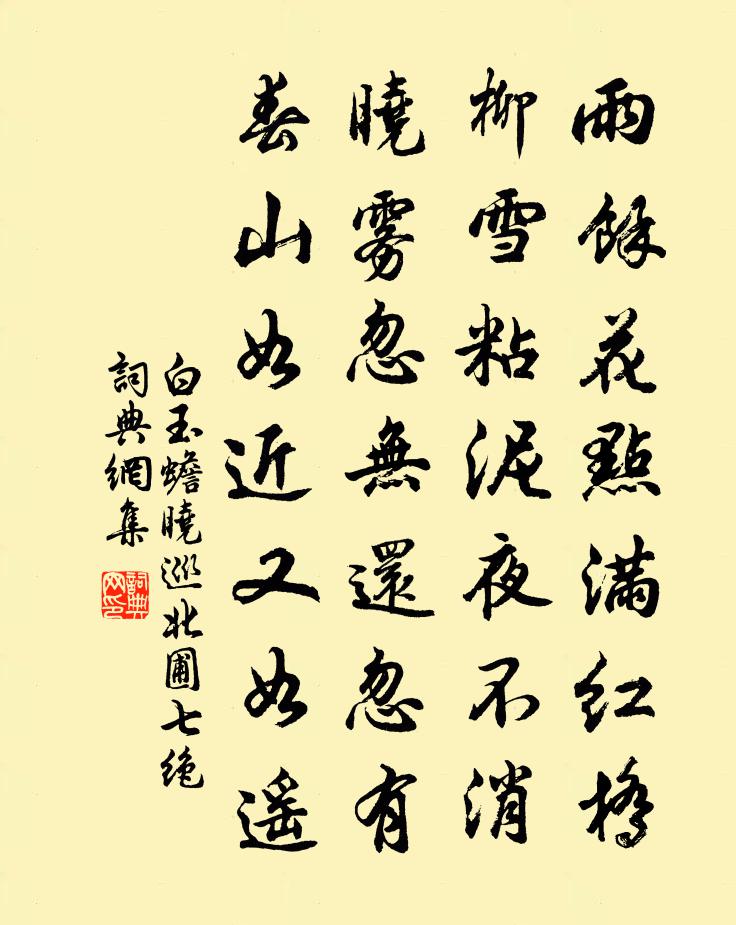 雨餘花點滿紅橋
柳雪粘泥夜不消
曉霧忽無還忽有
春山如近又如遥
白玉蟾曉巡北圃七绝
詞典網集
詞典网印